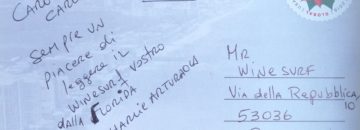 CARO
CARL
SEMPRE UN
PIACERE di
leggere il
WINESURF VOSTRO
DALLA FLORIDA
CHARLIE ARTURAOLA
MR
WINESURF
Via della Repubblica,
10
53036